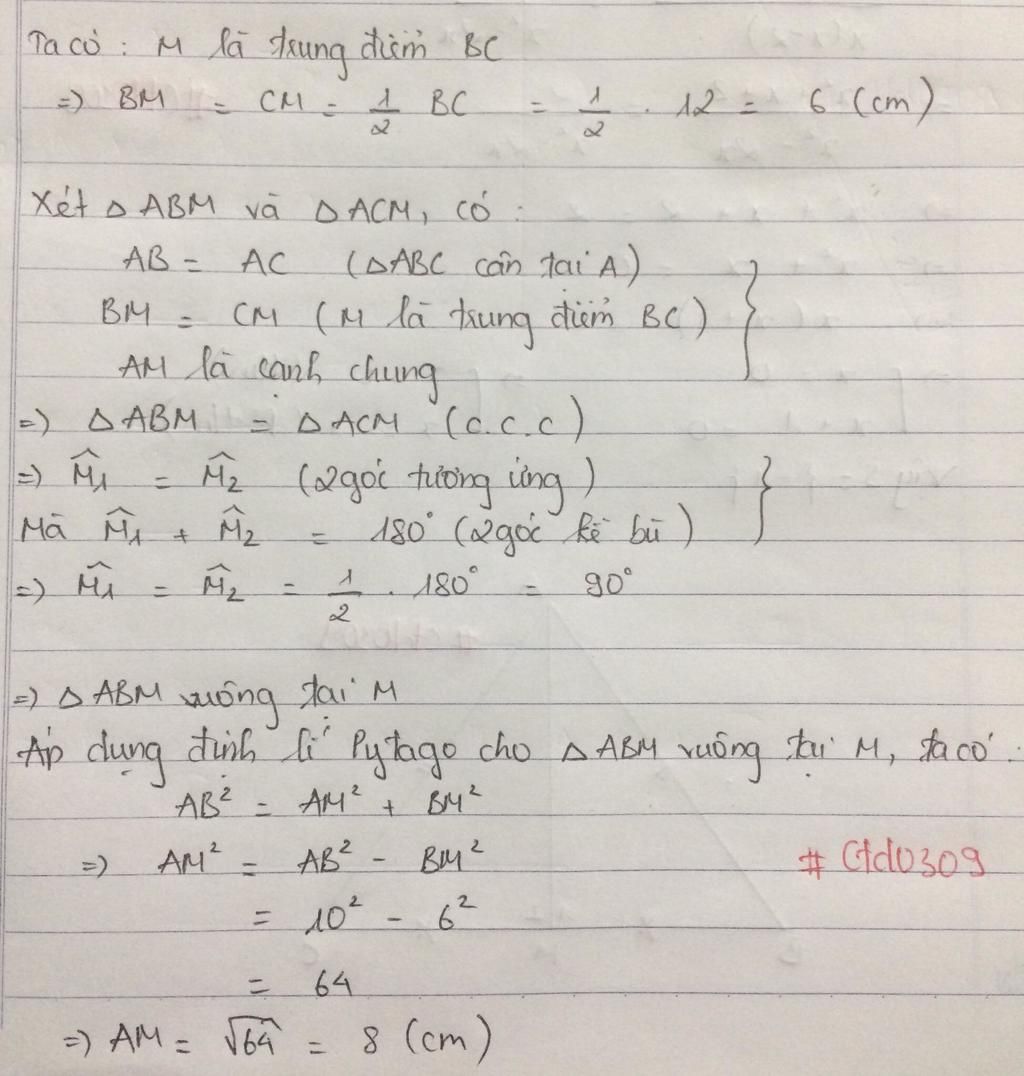 Ta có : M là trung điểm BC
=) BM = CM = 1/2 BC = 1/2 . 12 = 6 (cm)
Xét △ ABM và △ ACM, có :
AB = AC (△ABC cân tại A) }
BM = CM (M là trung điểm BC)
AM là cạnh chung
=) △ ABM = △ ACM (c.c.c)
=) M̂1 = M̂2 (2 góc tương ứng) }
Mà M̂1 + M̂2 = 180° (2 góc kề bù)
=) M̂1 = M̂2 = 1/2 . 180° = 90°
=) △ ABM vuông tại M
Áp dụng định lí Pytago cho △ ABM vuông tại M, ta có :
AB² = AM² + BM²
=) AM² = AB² - BM²
# Ctd0309
= 10² - 6²
= 64
=) AM = √64 = 8 (cm)